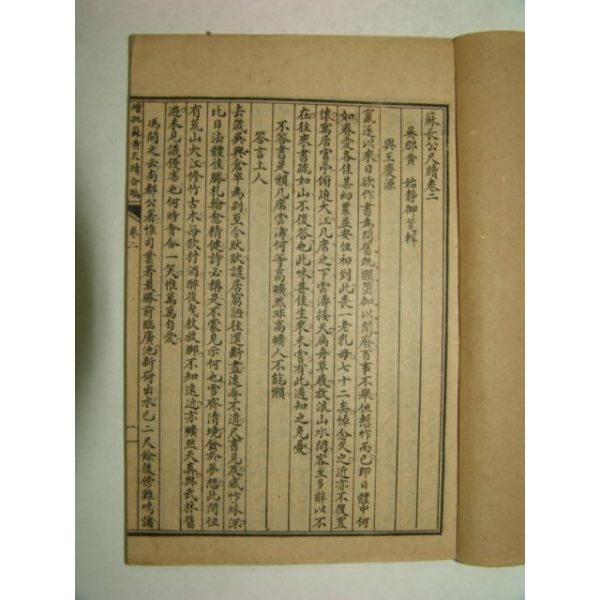 蘇長公尺牘卷二
吳郡黃　始靜御箋輯
與王慶源
竄逐以來日欲作書為問舊既懶惰加以閒廢百事不舉但慙怍而已即日體中何
如眷愛各佳某幼累並安但初到此喪一老乳母七十二矣悼念久之近亦不復置
懷寓居官亭俯迫大江几席之下雲濤接天扁舟草履放浪山水間客至多辭以不
在往來書疏如山不復答也此味甚佳生來未嘗有此適知之免憂
不答書是懶几席雲濤何等高曠然非高曠人不能懶
答言上人
去歲吳興倉卒為別至今耿耿譴居窮陋往還斷盡遠辱不遺尺書見及感怍殊深
比日法體佳勝札翰愈精健詩必稱是不蒙見示何也雪齋清境發於夢想此間但
有荒山大江修竹古木每飲村酒醉後曳杖放腳不知遠近亦曠然天真與武林舊
遊未見議優劣也何時會合一笑惟萬萬自愛
馮開之云南都公署惟司業署最勝前臨廣池新荷出水已二尺餘後傍雞鳴諸
增批蘇黃尺牘合編　卷二　一